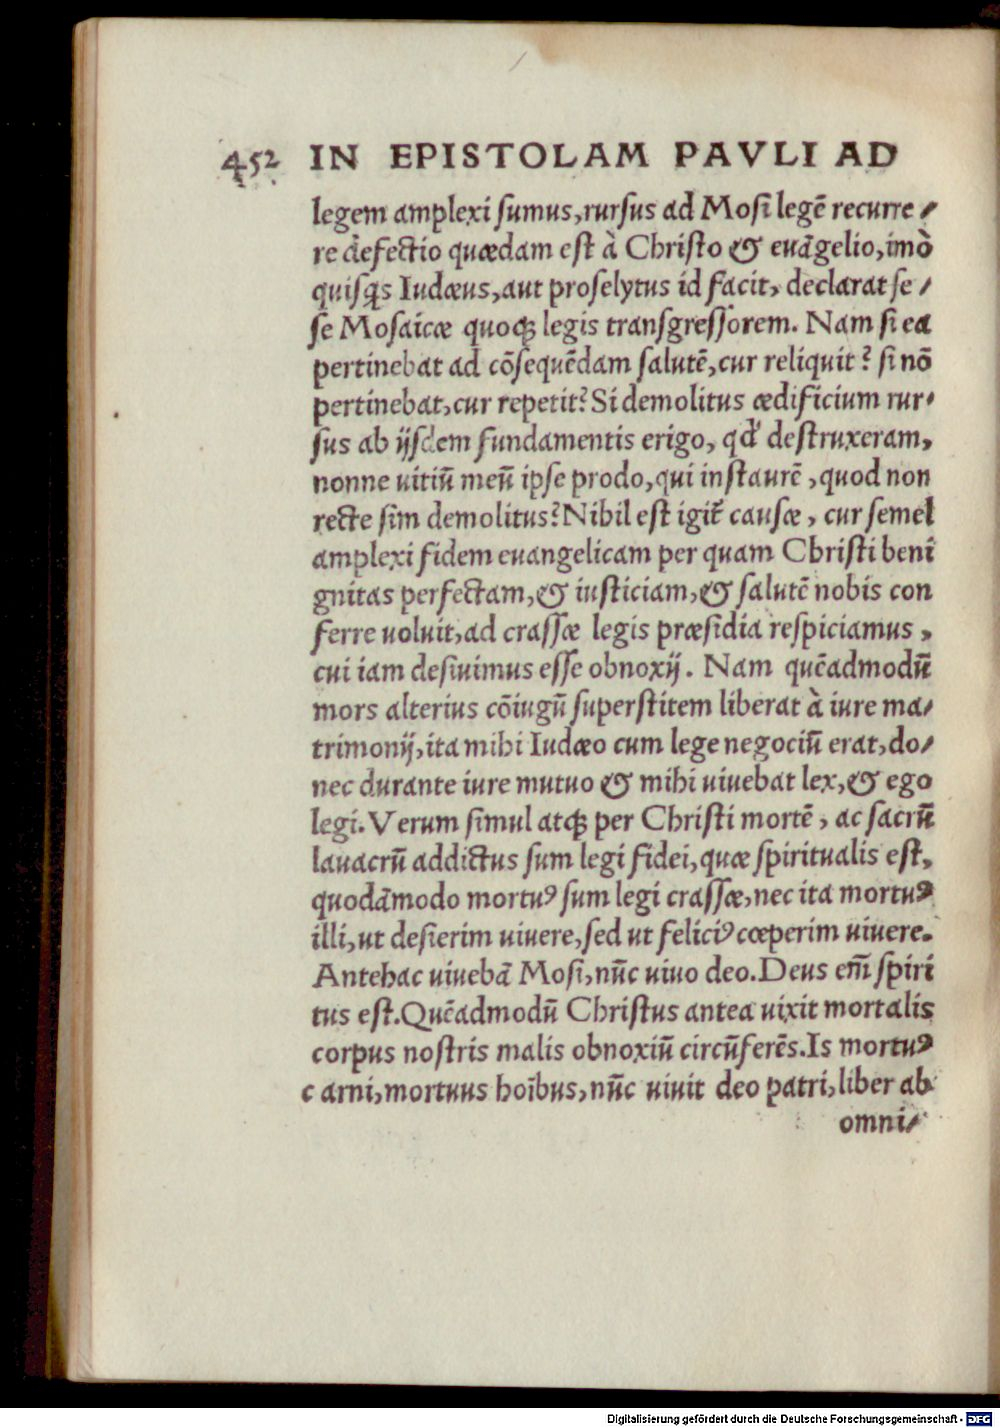 452 IN EPISTOLAM PAVLI AD
legem amplexi sumus, rursus ad Mosi legē recurre-
re defectio quædam est à Christo & euāgelio, imò
quisq̃s Iudæus, aut proselytus id facit, declarat se-
se Mosaicæ quoqꝫ legis transgressorem. Nam si ea
pertinebat ad cōsequēdam salutē, cur reliquit? si nō
pertinebat, cur repetit? Si demolitus ædificium rur-
sus ab ijsdem fundamentis erigo, qđ destruxeram,
nonne uitiū meū ipse prodo, qui instaurē, quod non
recte sim demolitus? Nihil est igit̃ causæ, cur semel
amplexi fidem euangelicam per quam Christi beni
gnitas perfectam, & iusticiam, & salutē nobis con
ferre uoluit, ad crassæ legis præsidia respiciamus,
cui iam desiuimus esse obnoxij. Nam quēadmodū
mors alterius cōiugū superstitem liberat à iure ma-
trimonij, ita mihi Iudæo cum lege negociū erat, do-
nec durante iure mutuo & mihi uiuebat lex, & ego
legi. Verum simul atqꝫ per Christi mortē, ac sacrū
lauacrū addictus sum legi fidei, quæ spiritualis est,
quodāmodo mortuꝰ sum legi crassæ, nec ita mortuꝰ
illi, ut desierim uiuere, sed ut feliciꝰ cœperim uiuere.
Antehac uiuebā Mosi, nūc uiuo deo. Deus em̄ spiri
tus est. Quēadmodū Christus antea uixit mortalis
corpus nostris malis obnoxiū circūferēs. Is mortuꝰ
carni, mortuus hoībus, nūc uiuit deo patri, liber ab
omni-
Digitalisierung gefördert durch die Deutsche Forschungsgemeinschaft - DFG